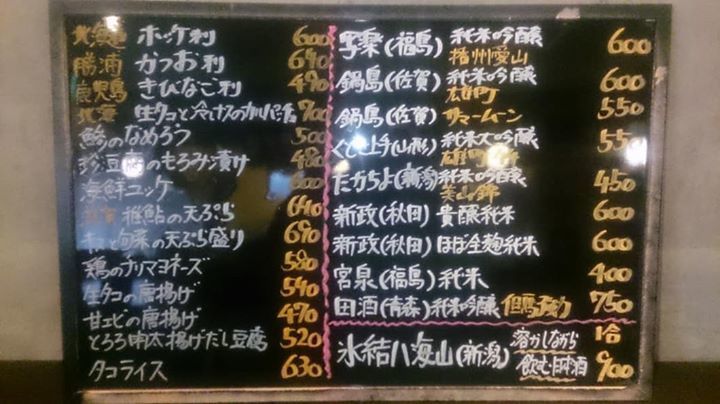 北海道 ホッケ刺 600
勝浦 かつお刺 690
鹿児島 きびなご刺 490
生タコと冷やしナスの 700
鯵のなめろう 500
豆腐のもろみ漬け 480
海鮮ユッケ 600
稚鮎の天ぷら 640
旬菜の天ぷら盛り 690
鶏のチリマヨネーズ 580
生タコの唐揚げ 540
甘エビの唐揚げ 470
とろろ明太揚げだし豆腐 520
タコライス 630
写楽(福島) 純米吟醸 播州愛山 600
鍋島(佐賀) 純米吟醸 雄町 600
鍋島(佐賀) サマームーン 550
くどき上手(山形) 純米大吟醸 雄町 550
たかちよ(新潟) 純米吟醸 美山錦 450
新政(秋田) 貴醸純米 600
新政(秋田) ほぼ全麹純米 600
宮泉(福島) 純米 400
田酒(青森) 純米吟醸 但馬強力 750
氷結八海山(新潟) 溶かしながら飲む日本酒 1合 900